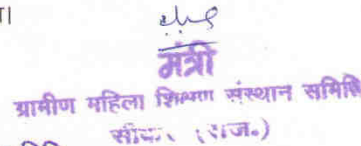 मंत्री
ग्रामीण महिला शिक्षण संस्थान समिति
सीकर (राज.)